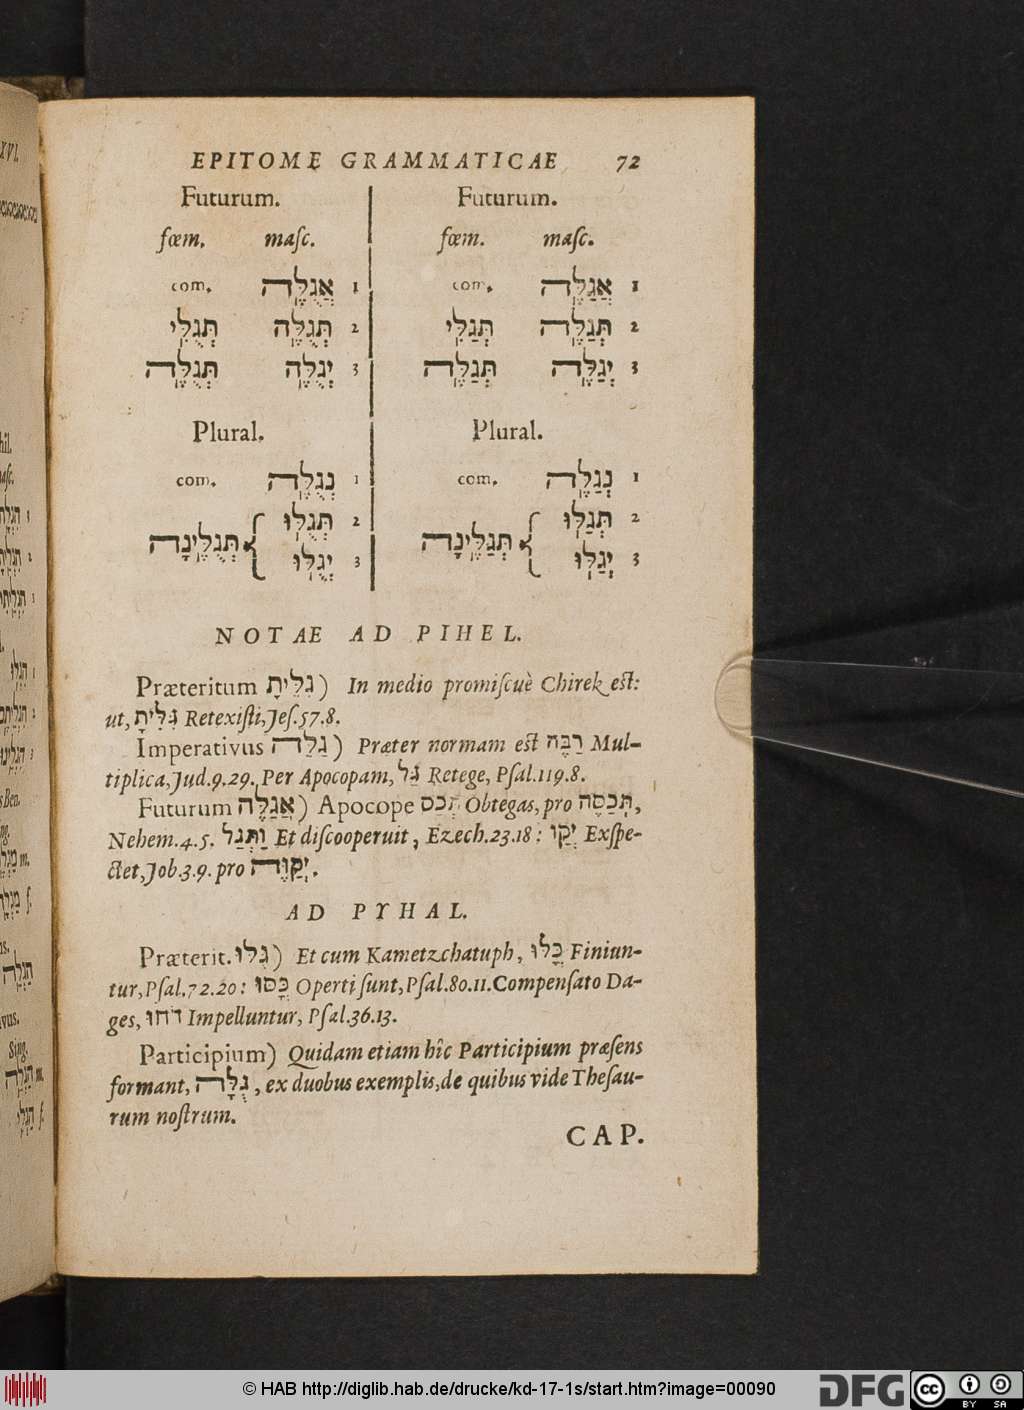 EPITOME GRAMMATICAE 72
Futurum. Futurum.
fœm. maſc. fœm. maſc.
com. אֲגֻלֶּה 1 com. אֲגַלֶּה 1
תְּגֻלִּי תְּגֻלֶּה 2 תְּגַלִּי תְּגַלֶּה 2
תְּגֻלֶּה יְגֻלֶּה 3 תְּגַלֶּה יְגַלֶּה 3
Plural. Plural.
com. נְגֻלֶּה 1 com. נְגַלֶּה 1
תְּגֻלֶּינָה { תְּגֻלּוּ 2 תְּגַלֶּינָה { תְּגַלּוּ 2
יְגֻלּוּ 3 יְגַלּוּ 3
NOTAE AD PIHEL.
Præteritum גִלֵּיתָ) In medio promiſcuè Chirek eſt:
ut, גִּלִּיתָ Retexiſti, Jeſ.57.8.
Imperativus גַלֵּה) Præter normam eſt רַבֶּה Mul-
tiplica, Jud.9.29. Per Apocopam, גַּל Retege, Pſal.119.8.
Futurum אֲגַלֶּה) Apocope תְּכַס Obtegas, pro תְּכַסֶּה,
Nehem.4.5. וַתְּגַל Et diſcooperuit, Ezech.23.18: יְקַו Exſpe-
ctet, Job.3.9. pro יְקַוֶּה.
AD PYHAL.
Præterit. גֻלּוּ) Et cum Kametzchatuph, כָּלּוּ Finiun-
tur, Pſal.72.20: כָּסּוּ Operti ſunt, Pſal.80.11. Compenſato Da-
ges, דֹחוּ Impelluntur, Pſal.36.13.
Participium) Quidam etiam hîc Participium præſens
formant, גֻּלָּה, ex duobus exemplis, de quibus vide Theſau-
rum noſtrum.
CAP.
© HAB http://diglib.hab.de/drucke/kd-17-1s/start.htm?image=00090
DFG
cc BY SA